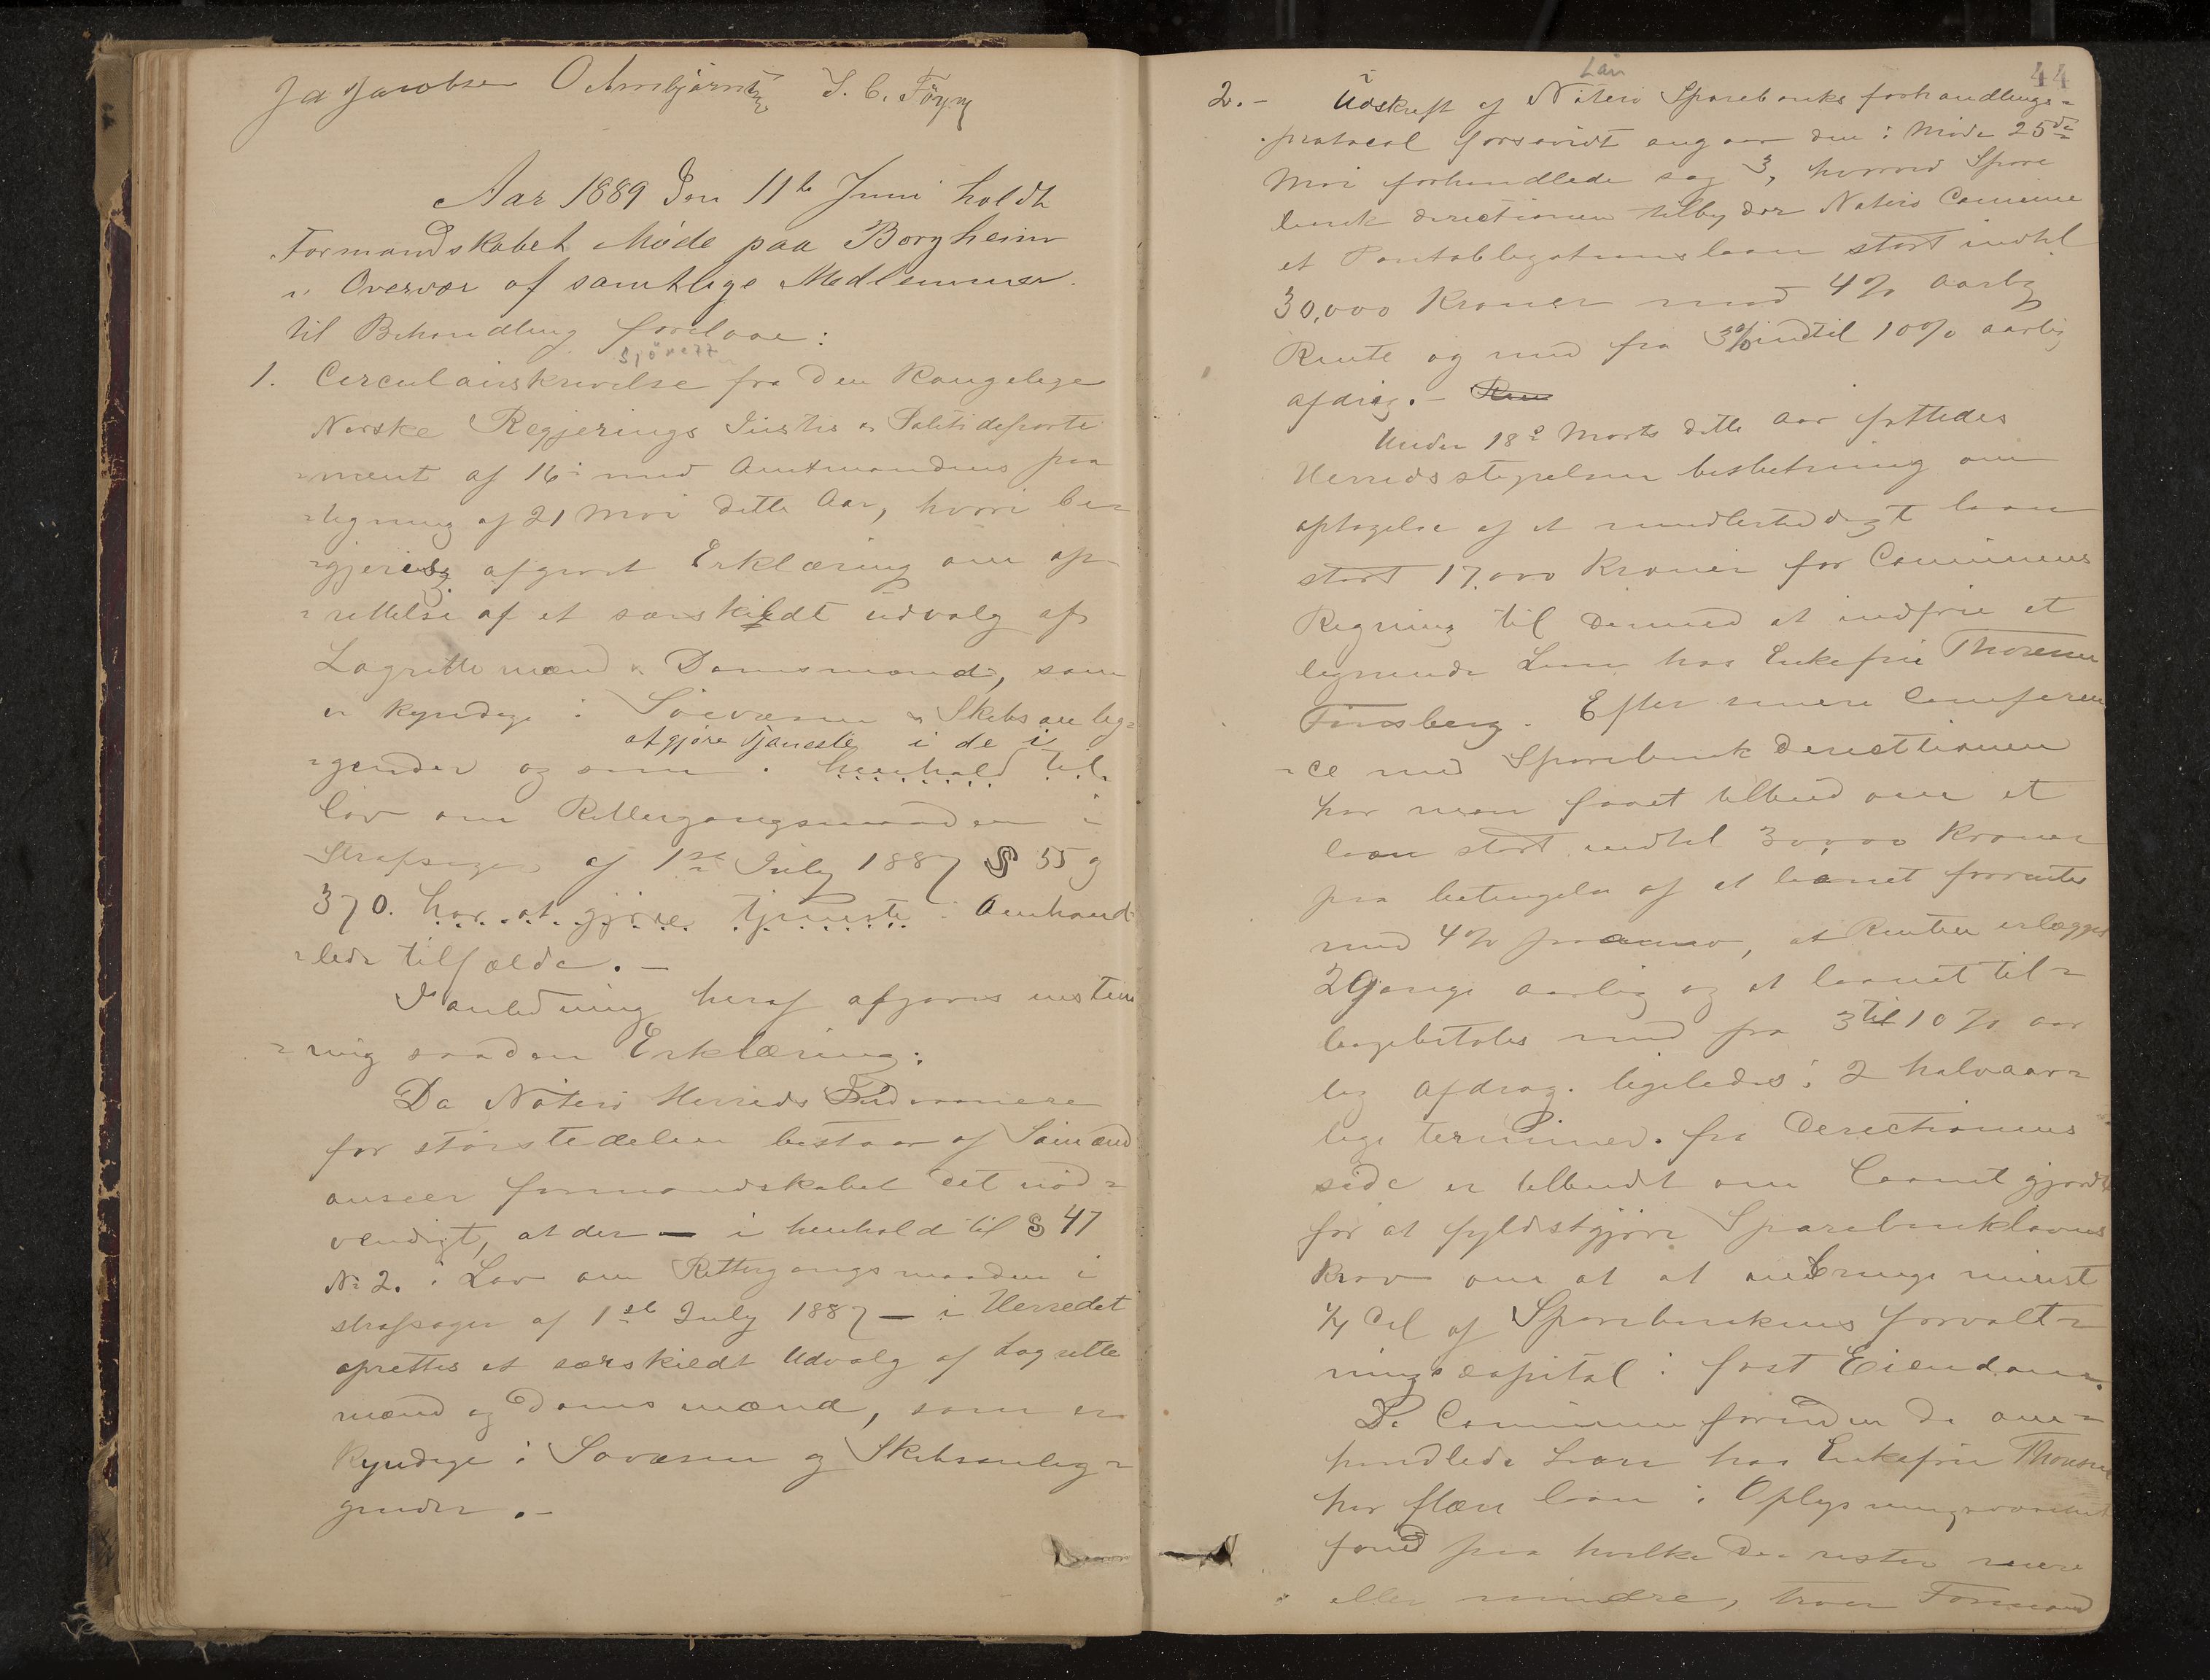 Ja Jacobsen O Arnbjørnsen S. C. Föyn
Aar 1889 Den 11te Juni holdt
Formandskabet Møde paa Borgheim
i Overvær af samtlige Medlemmer.
til Behandling forelaae:
Sjörett
1. Circulairskrivelse fra den Kongelige
Norske Regjerings Justis & Politideparte
-ment af 16 i med Amtmandens paa
-tegning af 21 Mai dette Aar, hvori be-
-gjeres afgivet Erklæring om op-
-rettelse af et særskildt udvalg af
Lagrettemænd & Domsmænd, som
er kyndige i Søevæsen & Skibsanleg-
at gjøre Tjeneste i de i
-gender og som i henhold til
Lov om Rettergangsmaaden i
Strafsager af 1ste July 1887 § 55 g
370. har at gjøre tjeneste i Omhand-
-lede tilfælde. -
I anledning heraf afgaves enstem
-mig saadan Erklæring:
Da Nøterø Herreds Indvaanere
for størstedelen bestaar af Sømænd
anseer formandskabet det nød-
vendigt, at der - i henhold til § 47
No 2. i Lov om Rettergangsmaaden i
strafsager af 1ste July 1887 - i Herredet
oprettes et særskildt Udvalg af Lagrette
mænd og Domsmænd, som er
kyndige i Søvæsen og Skibsanleg-
gender. -
44
Lån
2. - Udskrift af Nøterø Sparebanks forhandlings-
-protocol forsavidt angaar den i Møde 25de
Mai forhandlede sag 3, hvorved Spare
bank directionen tilbyder Nøterø Comune
et Pantobligationslaan stort indtil
30,000 Kroner mod 4% aarlig
Rente og med fra 3% indtil 10% aarlig
afdrag. -
Under 18de Marts dette Aar fattedes
Herredsstyrelsen beslutning om
optagelse af et laan
stort 17.000 Kroner for Communens
Regning til dermed at indfrie et
lignende Laan hos Enkefrue Thoresen
Tønsberg. Efter nærmere Conferen
-ce med Sparebank directionen
har man faaet tilbud om et
laan stort indtil 30,000 Kroner
paa betingelse af at laanet forrentes
med 4% pr anno, at Renten erlægges
2 Gange aarlig og at laanet til-
bagebetales med fra 3 til 10% aar
lig Afdrag ligeledes i 2 halvaar-
lige terminer. fra Directionens
side er tilbudt om Laanet gjordt
for at fyldestgjøre Sparebanklovens
Krav om at at anbringe minst
1/4 Del af Sparebankens forvalt-
nings capital i fast Eiendom.
Da Communen foruden de om-
handlede Laan hos Enkefrue Thoresen
har flere laan i Oplysningsvæsenets
fond paa hvilke der rester mere
eller mindre, troer Formand